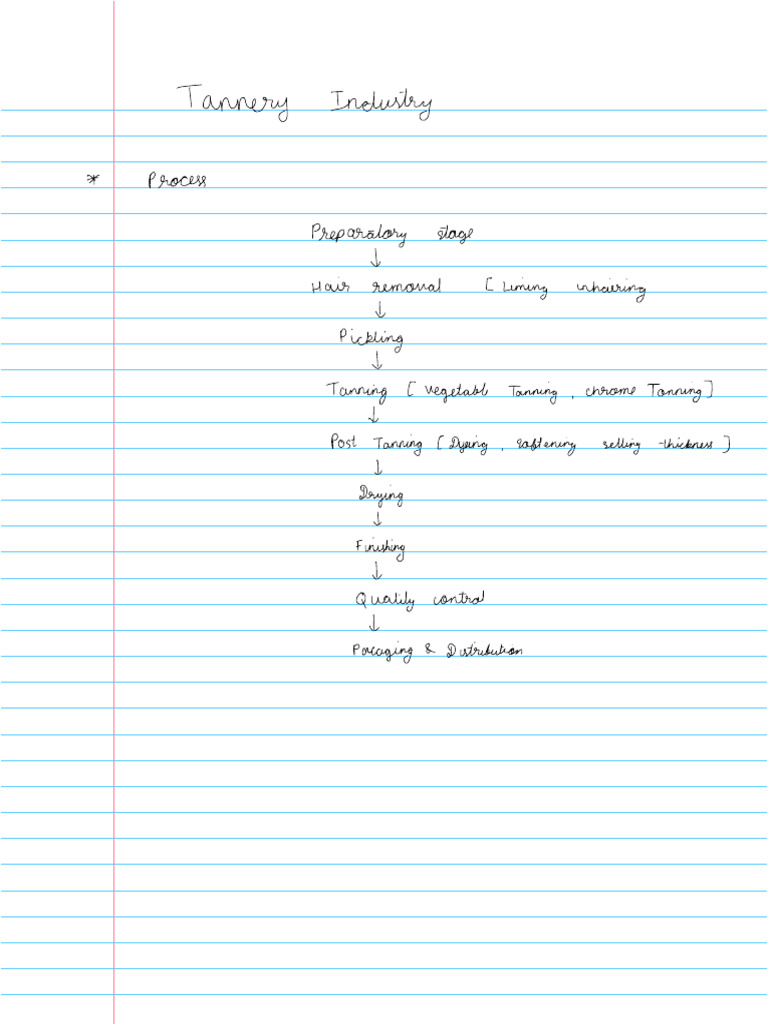 Tannery Industry
* Process
Preparatory stage
↓
Hair removal [ Liming unhairing
↓
Pickling
↓
Tanning [ vegetabl Tanning , chrome Tanning ]
↓
Post Tanning [ Dying , softening selling -thickness ]
↓
Drying
↓
Finishing
↓
Quality control
↓
Pacaging & Distribution